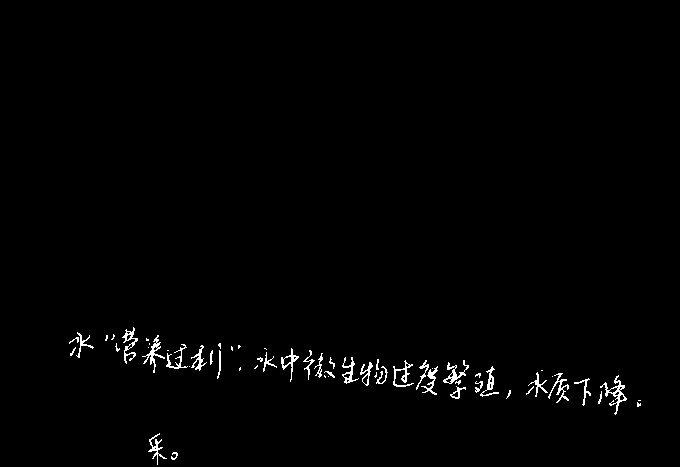 水"营养过剩":水中微生物过度繁殖，水质下降。
采。